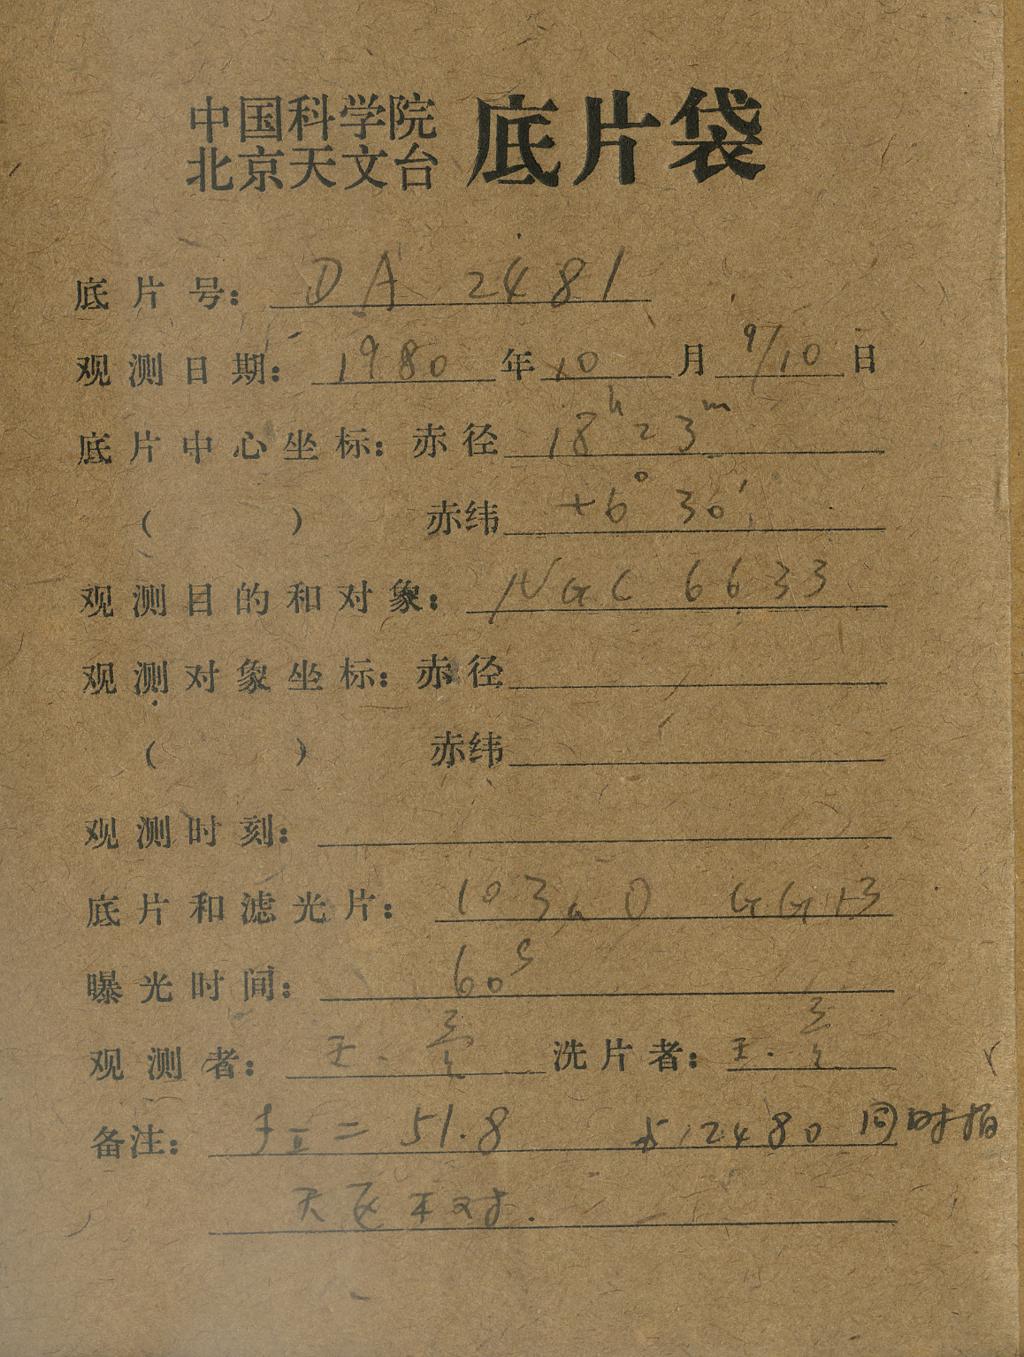 中国科学院
北京天文台 底片袋
底片号: DA 2481
观测日期: 1980 年 10 月 9/10 日
底片中心坐标: 赤径 18h 23m
( ) 赤纬 +6° 30′
观测目的和对象: NGC 6633
观测对象坐标: 赤径
( ) 赤纬
观测时刻:
底片和滤光片: 103aO GG13
曝光时间: 60s
观测者: 王. 洗片者: 王.
备注: = 51.8 与12480 同时拍
天区不对.